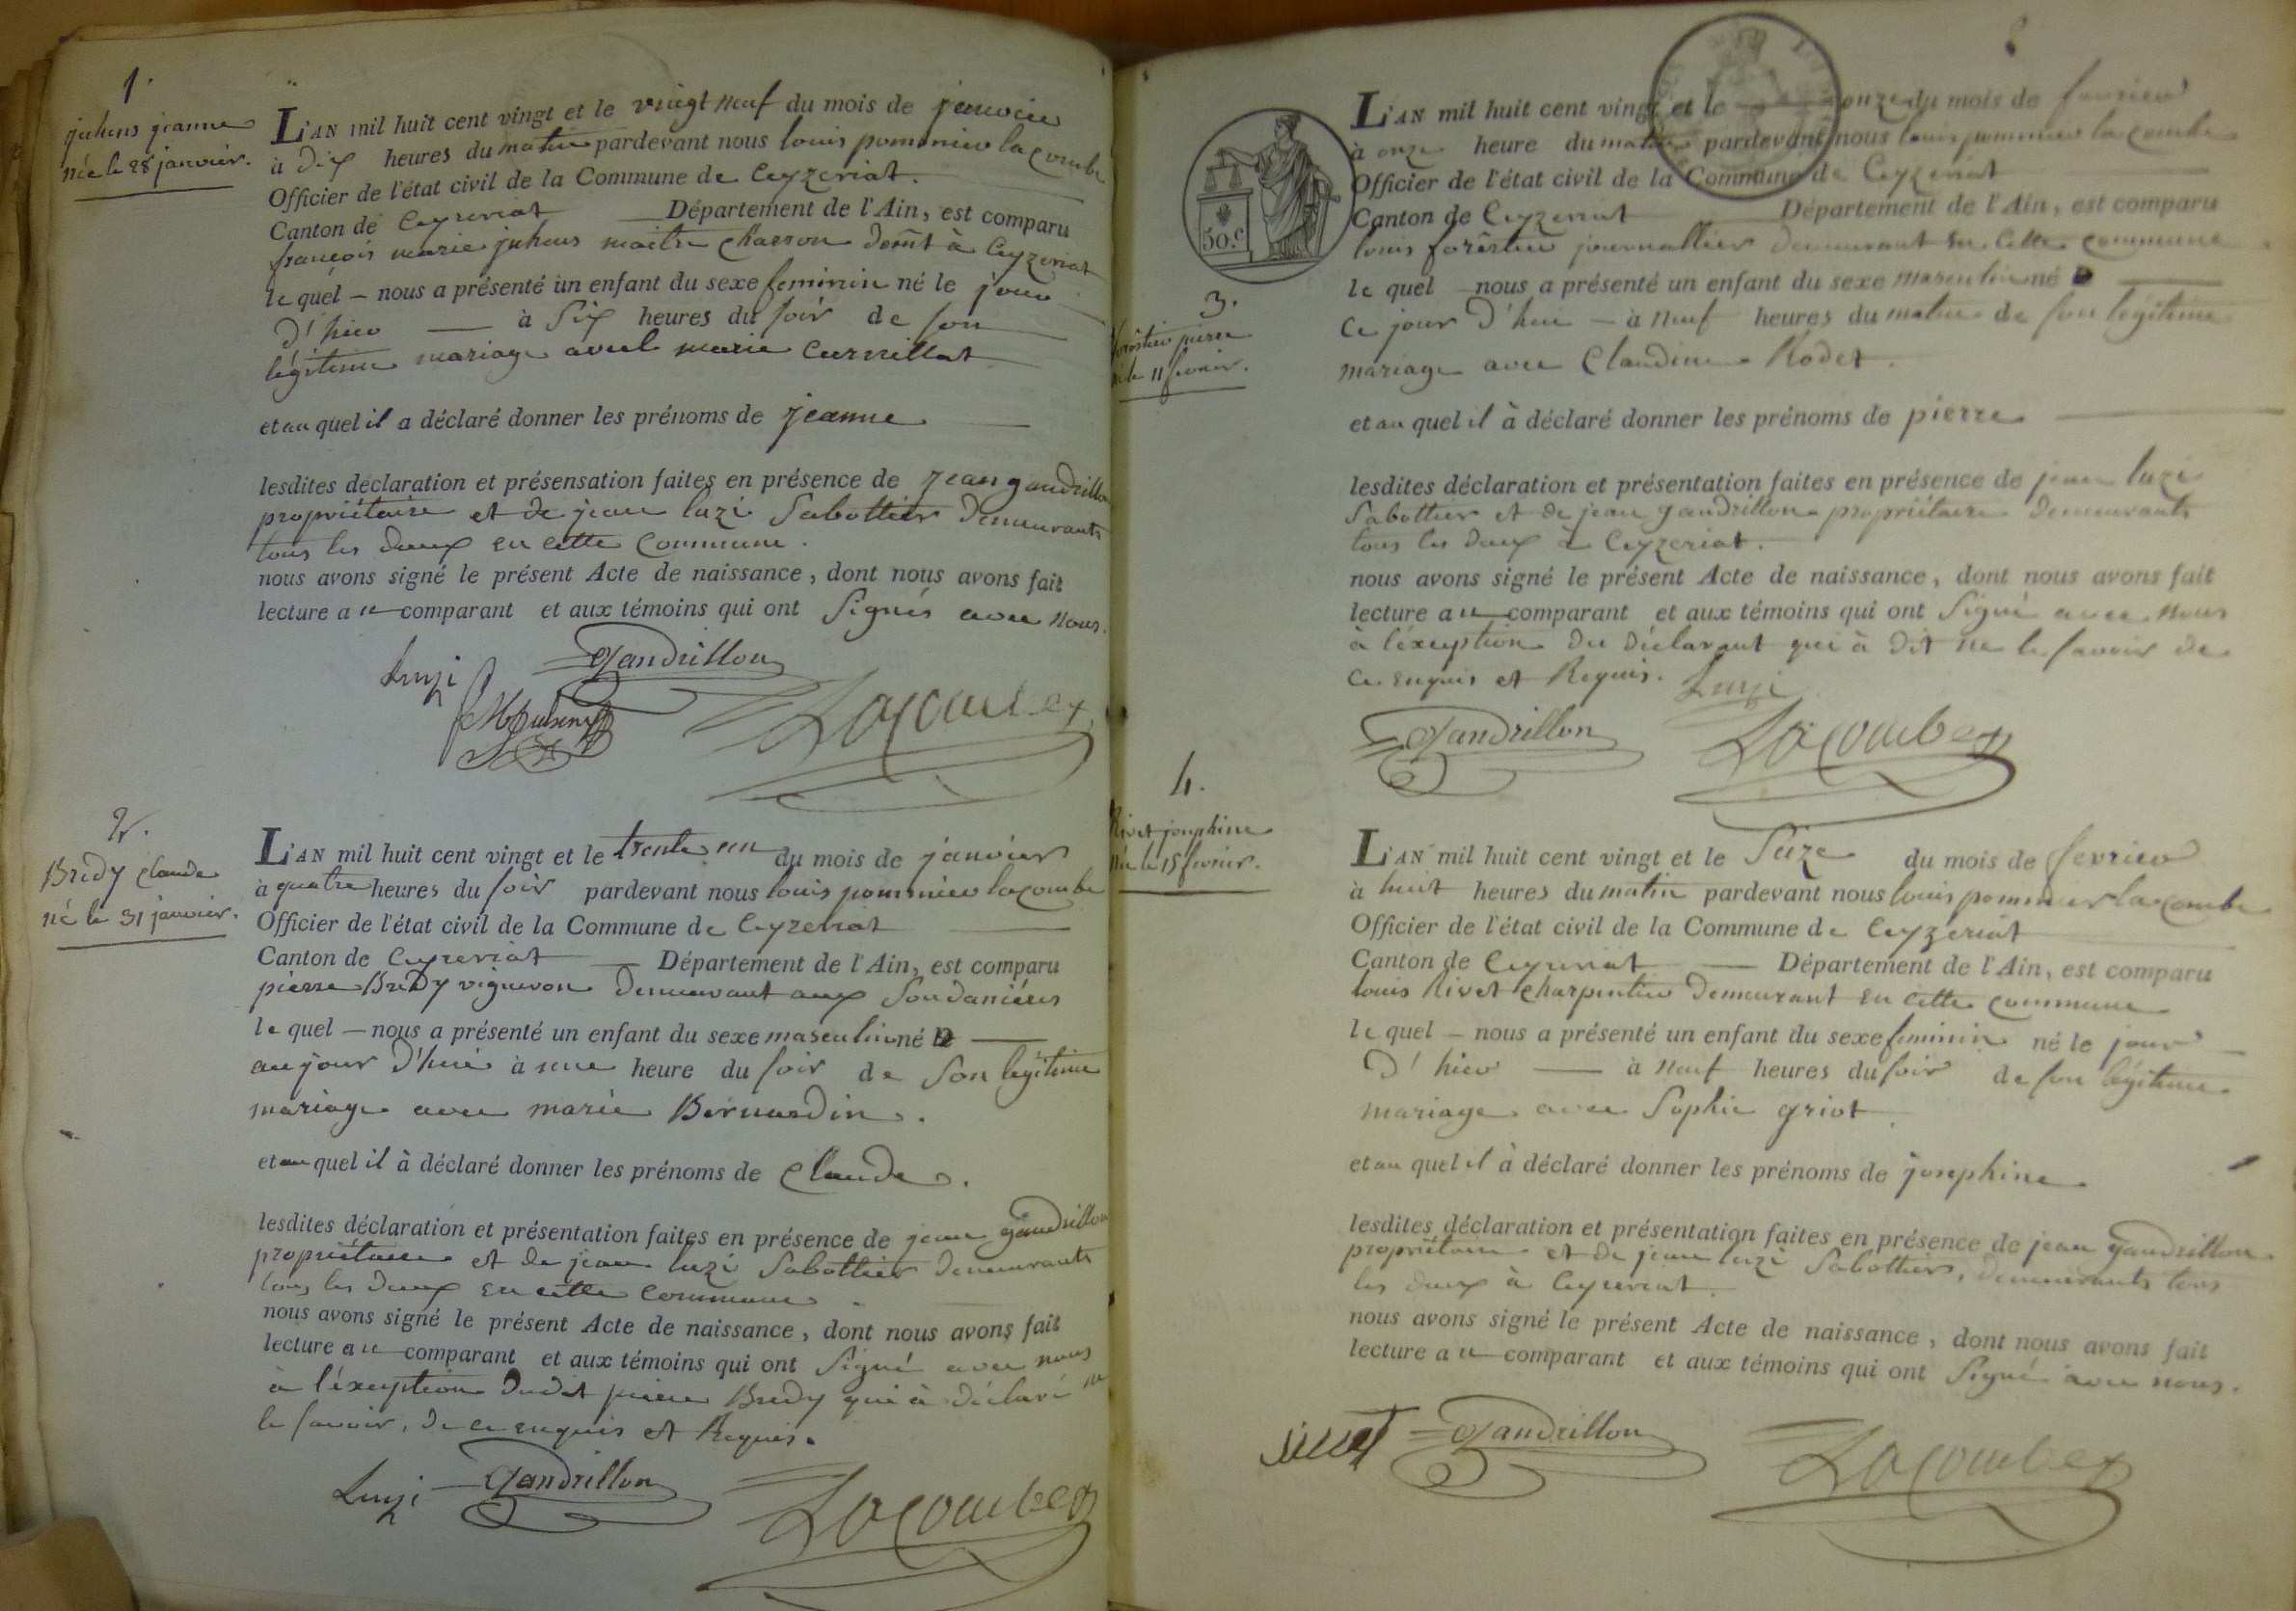 1.
juhens jeanne
née le 28 janvier.
L'AN mil huit cent vingt et le vingt neuf du mois de janvier
à dix heures du matin pardevant nous louis pommier lacombe
Officier de l'état civil de la Commune de Ceyzeriat.
Canton de Ceyzeriat Département de l'Ain, est comparu
françois marie juhens maitre charron demt à Ceyzeriat
le quel — nous a présenté un enfant du sexe feminin né le jour
d'hier — à six heures du soir de son
légitime mariage avec marie
et au quel il a déclaré donner les prénoms de jeanne
lesdites déclaration et présensation faites en présence de jean gandrillon
propriétaire et de jean luzi Sabottier demeurants
tous les deux en cette commune.
nous avons signé le présent Acte de naissance, dont nous avons fait
lecture au comparant et aux témoins qui ont signés avec nous.
Luzi Gandrillon
Lacombe
2.
Bredy Claude
né le 31 janvier.
L'AN mil huit cent vingt et le trente un du mois de janvier
à quatre heures du soir pardevant nous louis pommier lacombe
Officier de l'état civil de la Commune de Ceyzeriat
Canton de Ceyzeriat — Département de l'Ain, est comparu
pierre Bredy vigneron demeurant aux Soudanières
le quel — nous a présenté un enfant du sexe masculin né
aujour d'hui à une heure du soir de son légitime
mariage avec marie Bernardin.
et au quel il à déclaré donner les prénoms de Claude.
lesdites déclaration et présentation faites en présence de jean gandrillon
propriétaire et de jean luzi Sabottier demeurants
tous les deux en cette commune
nous avons signé le présent Acte de naissance, dont nous avons fait
lecture au comparant et aux témoins qui ont signé avec nous
à l'éxeption dudit pierre Bredy qui à déclaré ne
le savoir, de ce enquis et Requis.
Luzi Gandrillon Lacombe
50.c
3.
forêstier pierre
né le 11 fevrier.
L'AN mil huit cent vingt et le onze du mois de fevrier
à onze heure du matin pardevant nous louis pommier lacombe
Officier de l'état civil de la Commune de Ceyzeriat
Canton de Ceyzeriat Département de l'Ain, est comparu
louis forêstier journallier demeurant en cette commune
le quel nous a présenté un enfant du sexe masculin né
ce jour d'hui — à neuf heures du matin de son légitime
mariage avec Claudine Rodet.
et au quel il à déclaré donner les prénoms de pierre
lesdites déclaration et présentation faites en présence de jean luzi
Sabottier et de jean gandrillon propriétaire demeurants
tous les deux à Ceyzeriat.
nous avons signé le présent Acte de naissance, dont nous avons fait
lecture au comparant et aux témoins qui ont signé avec nous
à l'éxeption du déclarant qui à dit ne le savoir de
ce enquis et Requis. Luzi
Gandrillon Lacombe
4.
Rivet josephine
née le 15 fevrier.
L'AN mil huit cent vingt et le seize du mois de fevrier
à huit heures du matin pardevant nous louis pommier lacombe
Officier de l'état civil de la Commune de Ceyzeriat
Canton de Ceyzeriat — Département de l'Ain, est comparu
louis Rivet charpentier demeurant en cette commune
le quel — nous a présenté un enfant du sexe feminin né le jour
d'hier — à neuf heures du soir de son légitime
mariage avec Sophie griot
et au quel il à déclaré donner les prénoms de josephine
lesdites déclaration et présentation faites en présence de jean gandrillon
propriétaire et de jean luzi Sabottier, demeurants tous
les deux à Ceyzeriat.
nous avons signé le présent Acte de naissance, dont nous avons fait
lecture au comparant et aux témoins qui ont signé avec nous.
Gandrillon Lacombe